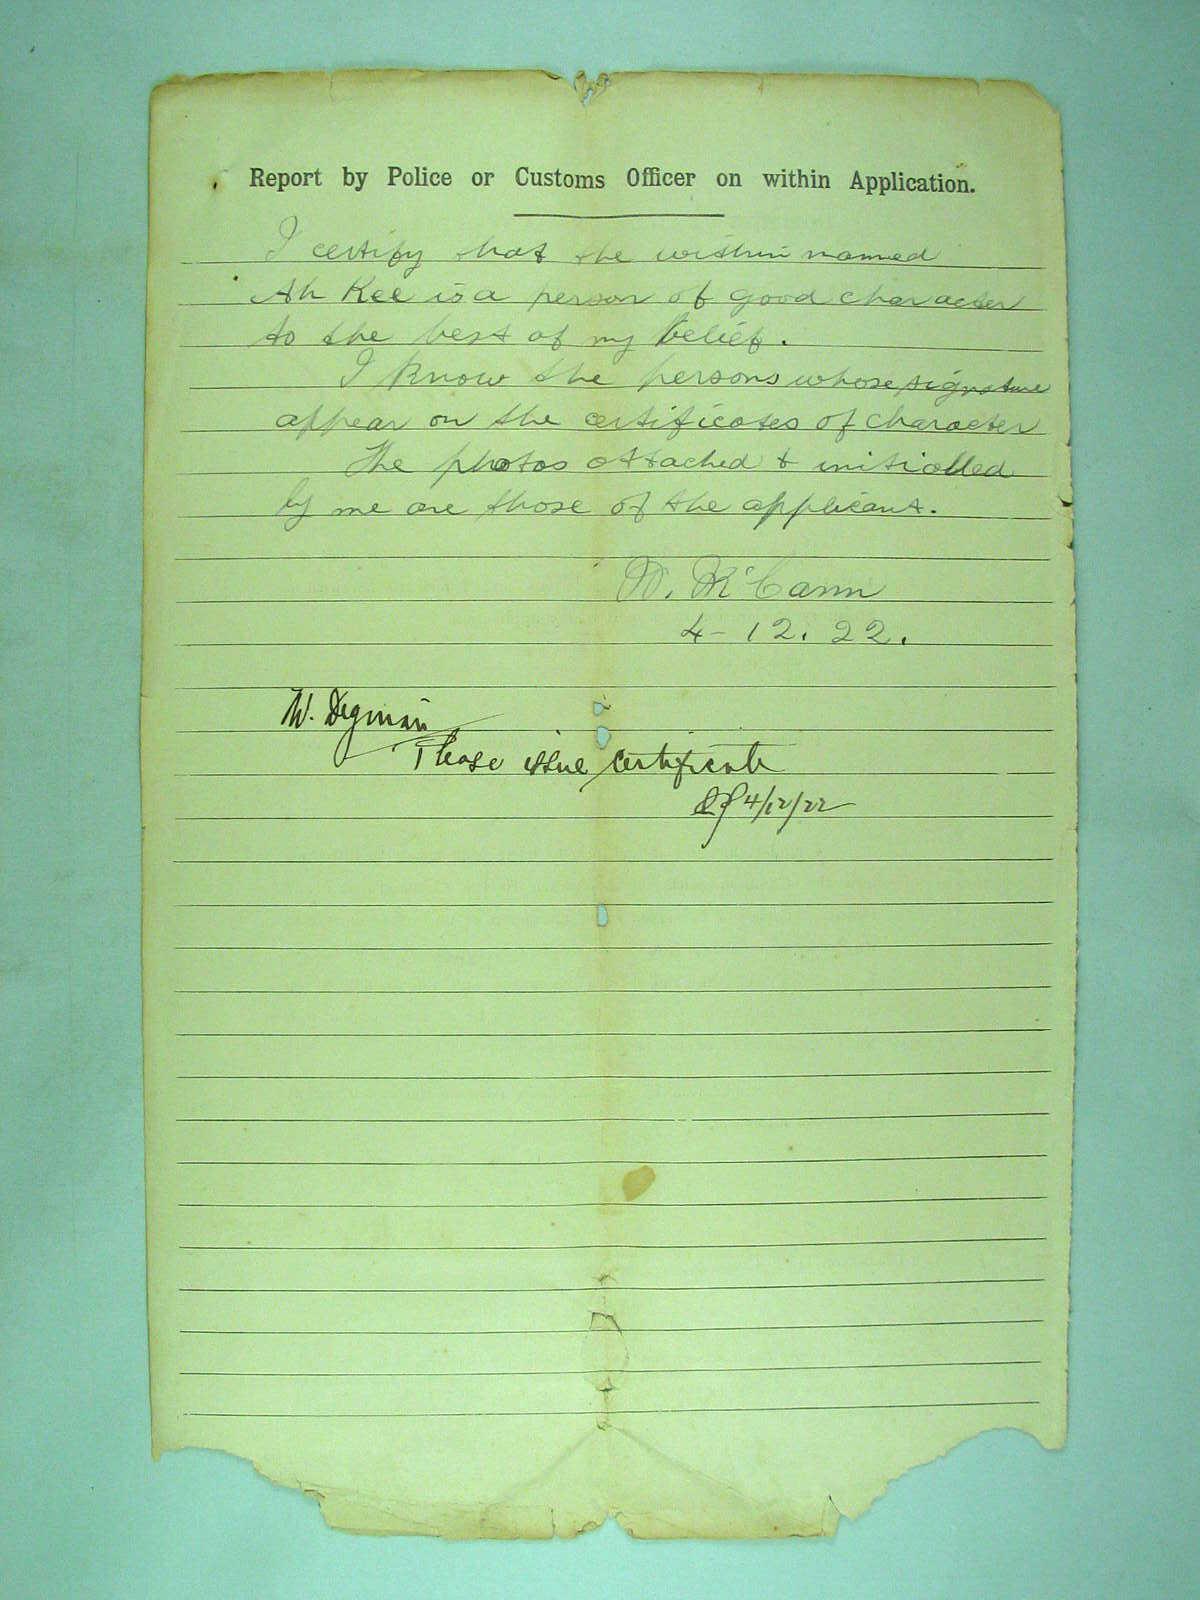 Report by Police or Customs Officer on within Application.
I certify that the within named
Ah Kee is a person of good character
to the best of my belief.
I know the persons whose signature
appear on the certificates of character
The photos attached & initialled
by me are those of the applicant.
W. McCann
4-12.22.
W. Degman
Please issue certificate
4/12/22